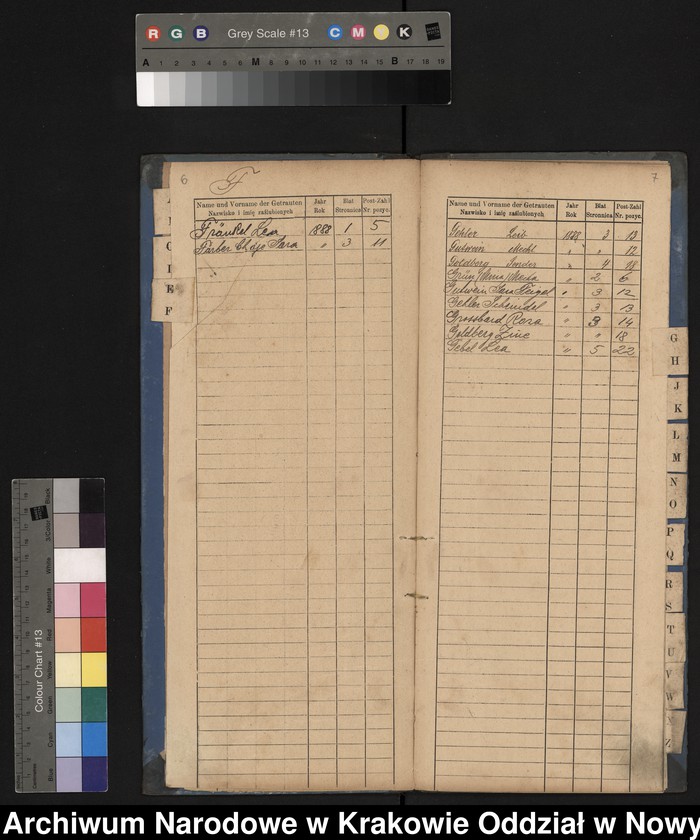 R G B Grey Scale #13 C M Y K
A 1 2 3 4 5 6 M 8 9 10 11 12 13 14 15 B 17 18 19
6 F
Name und Vorname der Getrauten Jahr Blatt Post-Zahl
Nazwisko i imię zaślubionych Rok Stronnica Nr. pozyc.
Fränkel Lea 1888 1 5
Färber Chaje Sara " 3 11
E
F
7
Name und Vorname der Getrauten Jahr Blatt Post-Zahl
Nazwisko i imię zaślubionych Rok Stronnica Nr. pozyc.
Gehler Leib 1888 3 13
Gutwein " " 12
Goldberg " 4 18
Grün " 2 6
Gutwein Sara Feigel " 3 12
Gehler Scheindel " 3 13
Grossbard Roza " 3 14
Goldberg " " 18
Gebel Lea " 5 22
G
H
J
K
L
M
N
O
P
Q
R
S
T
U
V
W
Z
Colour Chart #13
Blue Cyan Green Yellow Red Magenta White 3/Color Black
Archiwum Narodowe w Krakowie Oddział w Nowy